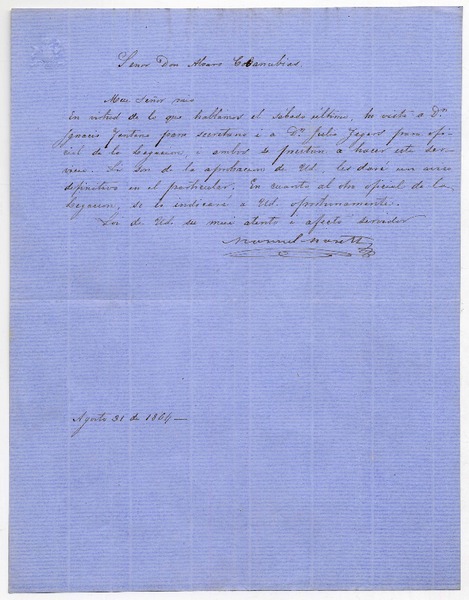 Señor Don Alvaro Covarrubias.
Mui Señor mio
En virtud de lo que hablamos el Sábado último, he visto a Dn
Ignacio para secretario i a Dn Julio para ofi-
cial de la Legacion, i ambos se prestan a hacer este ser-
vicio. Si son de la aprobacion de Ud. les daré un aviso
definitivo en el particular. En cuanto al otro oficial de la
Legacion, se lo indicaré a Ud. oportunamente.
Soi de Ud. su mui atento i afecto servidor
Manuel
Agosto 31 de 1864—